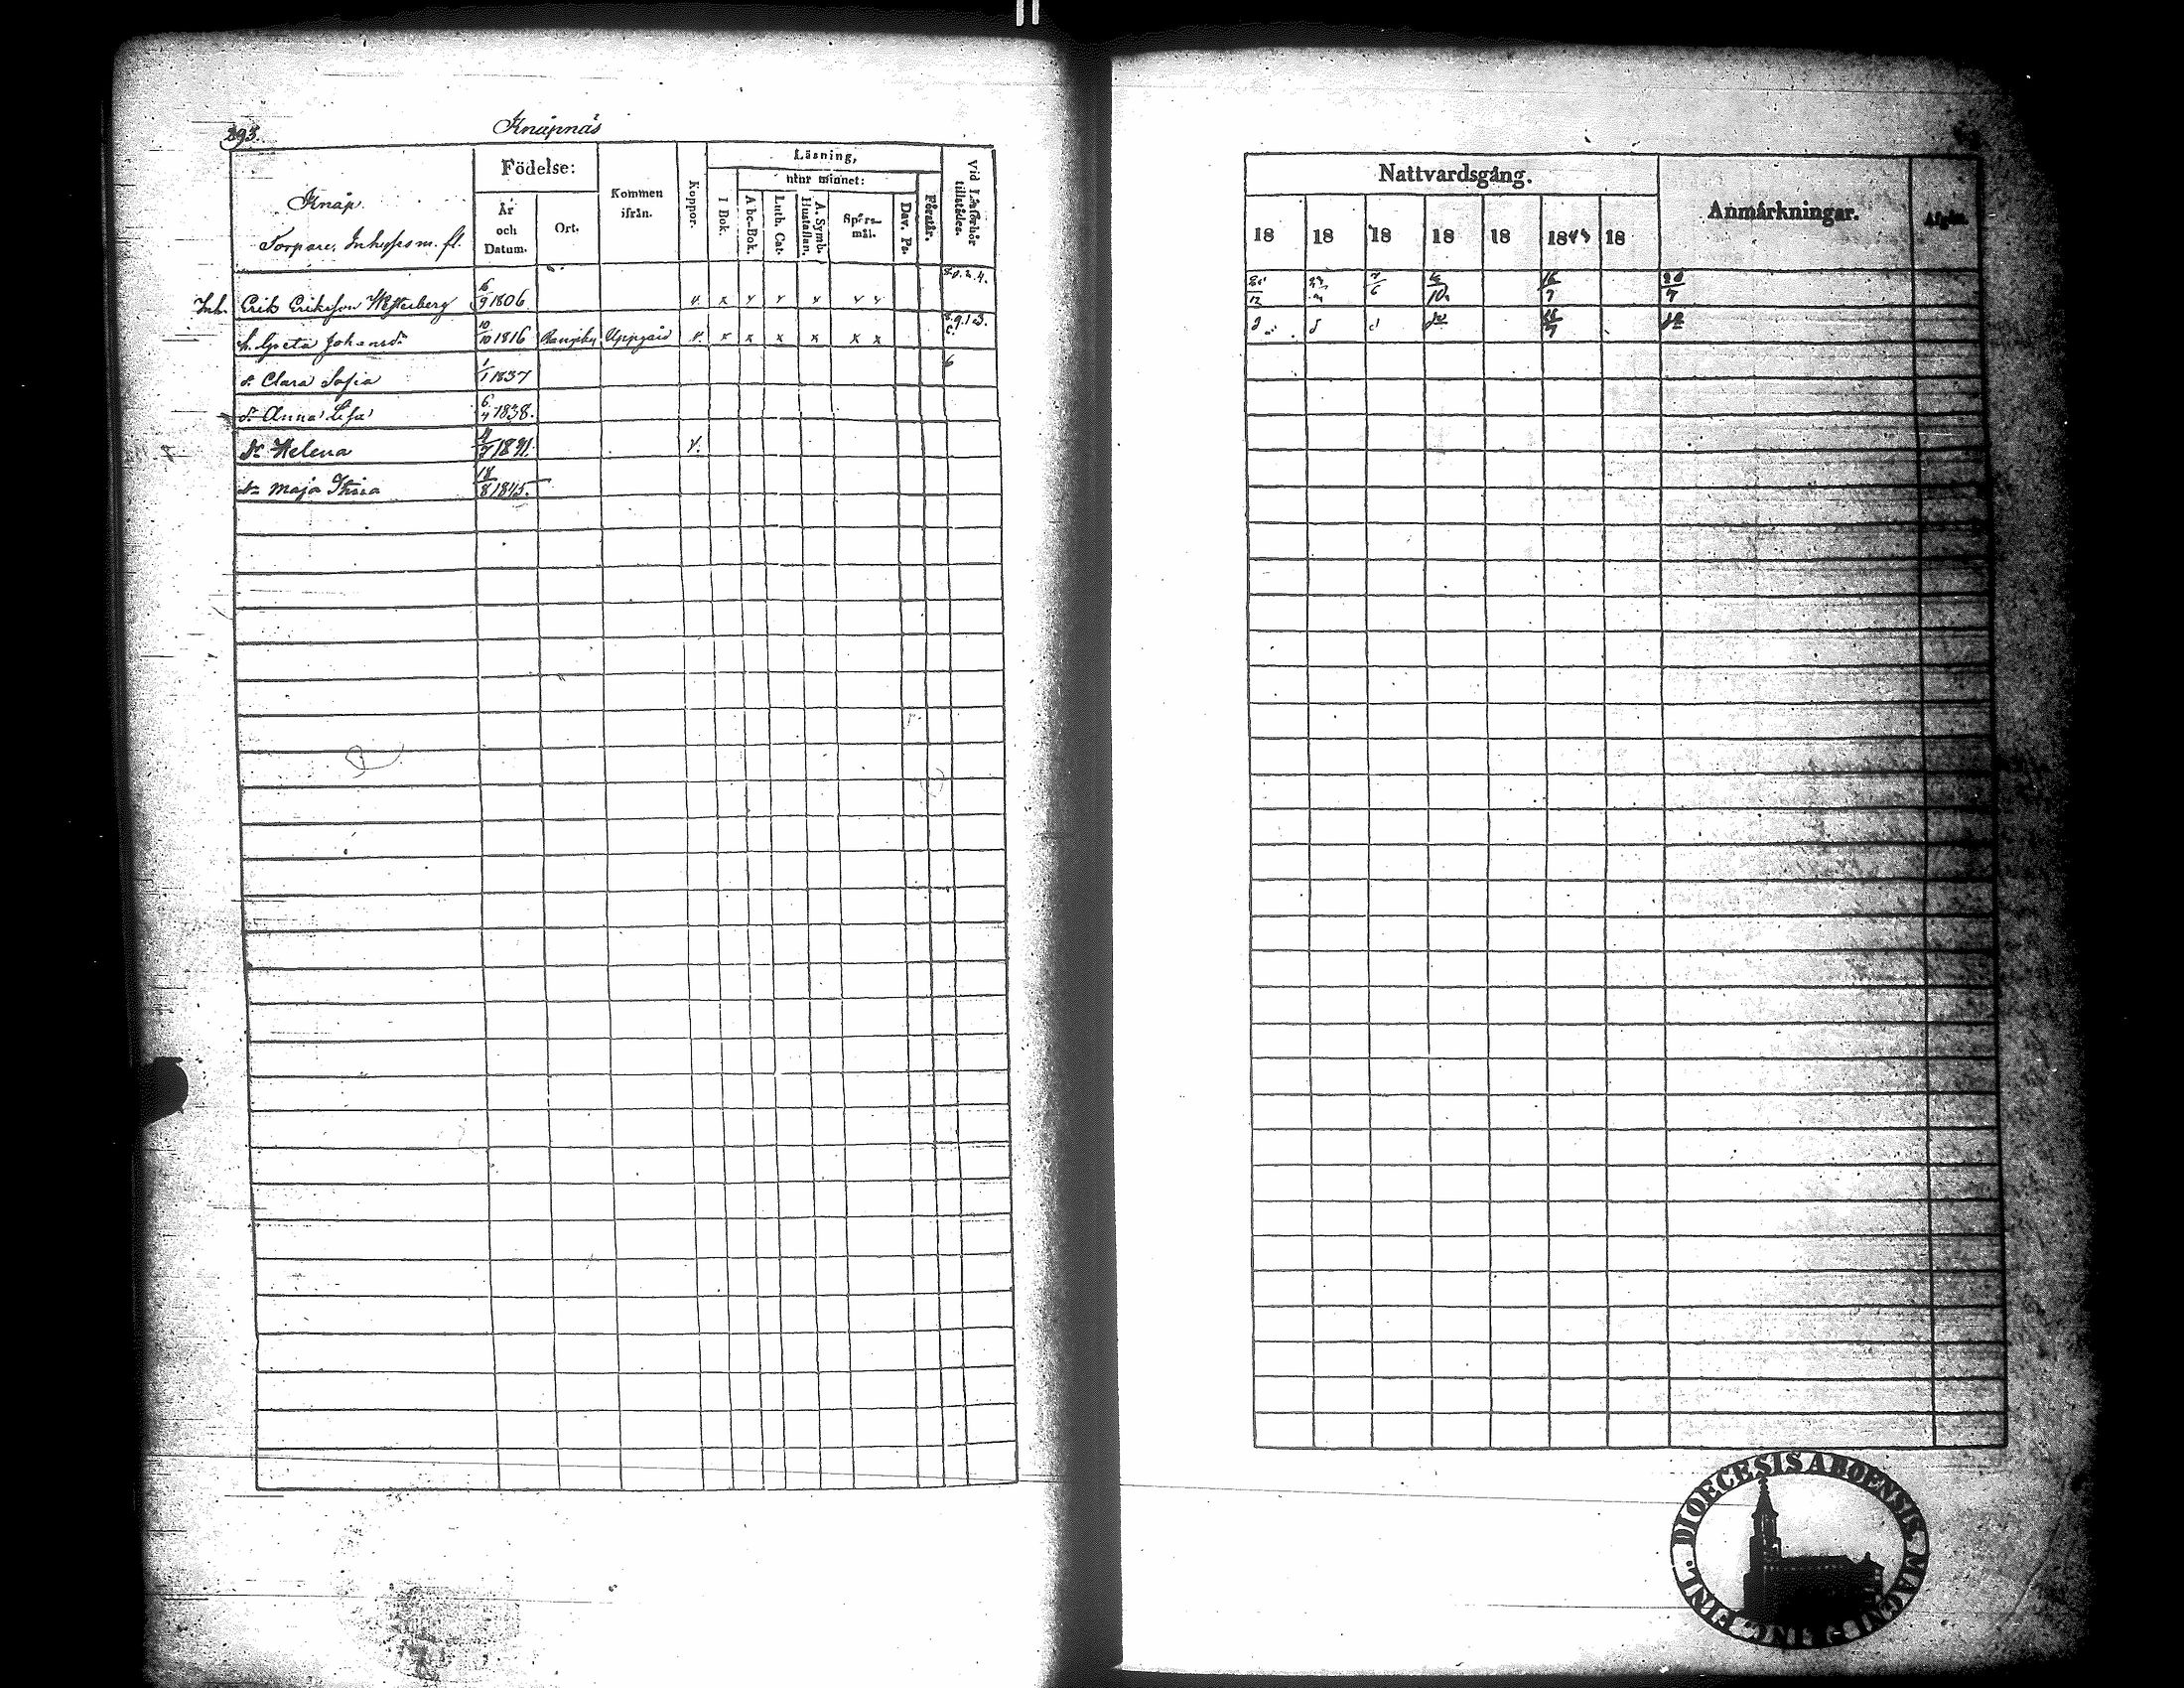 293.
Knäpnäs
Knäp.
Torpare, Inhyses m. fl.
Födelse:
År och Datum.
Ort.
Kommen ifrån.
Koppor.
Läsning,
utur minnet:
I Bok.
Abc-Bok.
Luth. Cat.
A. Symb. Hustaflan.
Spörsmål.
Dav. Ps.
Förstår.
Vid Läsförhör tillstädes.
Inh. Erik Eriksson Westerberg 16/9 1806 v. x v v v v v 8.0.2.4.
h. Greta Johansdr 10/10 1816 Rangsby Uppgård v. x x x x x x 8.9.1.3.
d. Clara Sofia 1/1 1837 6
d. Anna Lisa 6/4 1838.
dr Helena 1841. v.
dr Maja Stina 18/8 1845.
Nattvardsgång.
Anmärkningar.
Afgån.
18 18 18 18 18 1843 18
7/6 16/7 20/7
DIOECESIS ABOENSIS MAGNI PRINC. FINL.